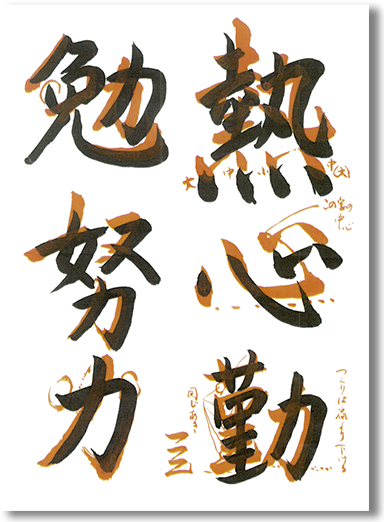 熱心勤
勉努力
大 中 小 中(大)
中心
つくりは扁より下げる
同じあき
三